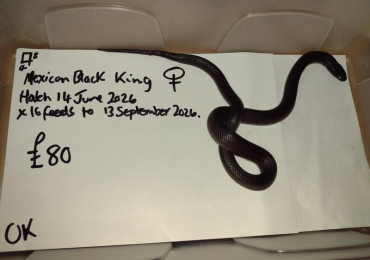 Mexican Black King ♀
Hatch 14 June 2026
x 16 feeds to 13 September 2026.
£80
OK